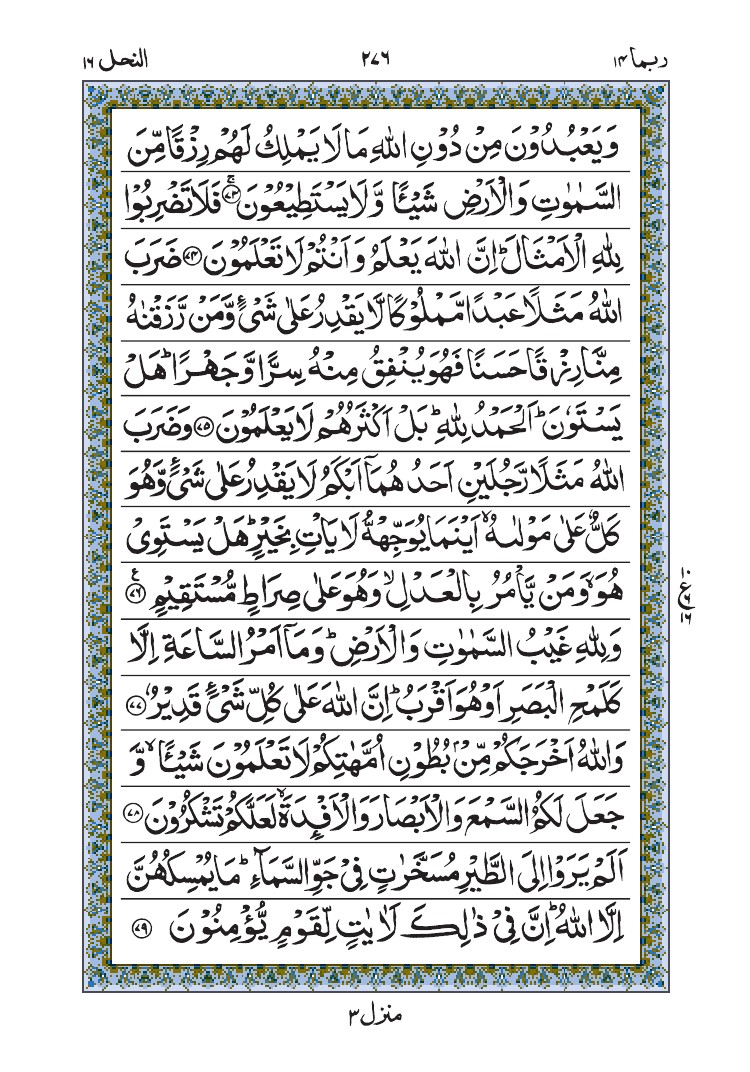 ربما ۱۴ ۲۷۶ النحل ۱۶
وَيَعْبُدُوْنَ مِنْ دُوْنِ اللّٰهِ مَا لَا يَمْلِكُ لَهُمْ رِزْقًا مِّنَ
السَّمٰوٰتِ وَالْاَرْضِ شَيْـًٔا وَّلَا يَسْتَطِيْعُوْنَ ۚ‏﴿۷۳﴾ فَلَا تَضْرِبُوْا
لِلّٰهِ الْاَمْثَالَ ؕ اِنَّ اللّٰهَ يَعْلَمُ وَاَنْتُمْ لَا تَعْلَمُوْنَ ﴿۷۴﴾ ضَرَبَ
اللّٰهُ مَثَلًا عَبْدًا مَّمْلُوْكًا لَّا يَقْدِرُ عَلٰى شَىْءٍ وَّمَنْ رَّزَقْنٰهُ
مِنَّا رِزْقًا حَسَنًا فَهُوَ يُنْفِقُ مِنْهُ سِرًّا وَّجَهْرًا ؕ هَلْ
يَسْتَوٗنَ ؕ اَلْحَمْدُ لِلّٰهِ ؕ بَلْ اَكْثَرُهُمْ لَا يَعْلَمُوْنَ ﴿۷۵﴾ وَضَرَبَ
اللّٰهُ مَثَلًا رَّجُلَيْنِ اَحَدُهُمَاۤ اَبْكَمُ لَا يَقْدِرُ عَلٰى شَىْءٍ وَّهُوَ
كَلٌّ عَلٰى مَوْلٰٮهُ ۙ اَيْنَمَا يُوَجِّهْهُّ لَا يَاْتِ بِخَيْرٍ ؕ هَلْ يَسْتَوِىْ
هُوَ ۙ وَمَنْ يَّاْمُرُ بِالْعَدْلِ ۙ وَهُوَ عَلٰى صِرَاطٍ مُّسْتَقِيْمٍ ﴿۷۶﴾ ع
وَلِلّٰهِ غَيْبُ السَّمٰوٰتِ وَالْاَرْضِ ؕ وَمَاۤ اَمْرُ السَّاعَةِ اِلَّا
كَلَمْحِ الْبَصَرِ اَوْ هُوَ اَقْرَبُ ؕ اِنَّ اللّٰهَ عَلٰى كُلِّ شَىْءٍ قَدِيْرٌ ﴿۷۷﴾
وَاللّٰهُ اَخْرَجَكُمْ مِّنْۢ بُطُوْنِ اُمَّهٰتِكُمْ لَا تَعْلَمُوْنَ شَيْـًٔا ۙ وَّ
جَعَلَ لَكُمُ السَّمْعَ وَالْاَبْصَارَ وَالْاَفْـِٕدَةَ ۙ لَعَلَّكُمْ تَشْكُرُوْنَ ﴿۷۸﴾
اَلَمْ يَرَوْا اِلَى الطَّيْرِ مُسَخَّرٰتٍ فِىْ جَوِّ السَّمَآءِ ؕ مَا يُمْسِكُهُنَّ
اِلَّا اللّٰهُ ؕ اِنَّ فِىْ ذٰلِكَ لَاٰيٰتٍ لِّقَوْمٍ يُّؤْمِنُوْنَ ﴿۷۹﴾
منزل ۳